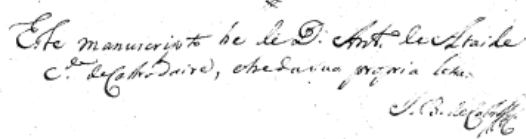 Este manuscripto he de D. Antº. de Ataide
Cde. de Castro Daire, e he da sua propria letra.